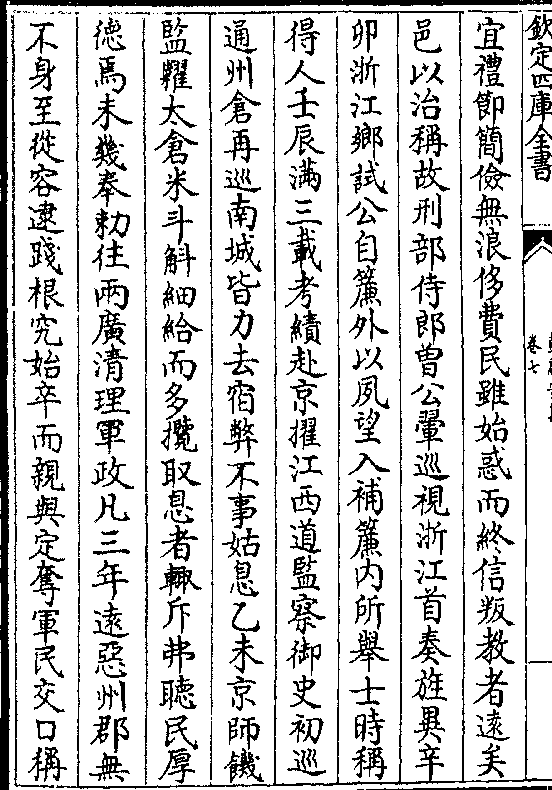 欽定四庫全書
卷七
宜禮節簡儉無浪侈費民雖始惑而終信叛教者遠矣
邑以治稱故刑部侍郎曾公翬巡視浙江首奏旌異辛
卯浙江鄉試公自簾外以夙望入補簾内所舉士時稱
得人壬辰滿三載考績赴京擢江西道監察御史初巡
通州倉再巡南城皆力去宿弊不事姑息乙未京師饑
監糶太倉米斗斛細給而多攬取息者輙斥弗聽民厚
德焉未幾奉勅徃兩廣清理軍政凡三年遠惡州郡無
不身至從容逮踐根究始卒而親與定奪軍民交口稱